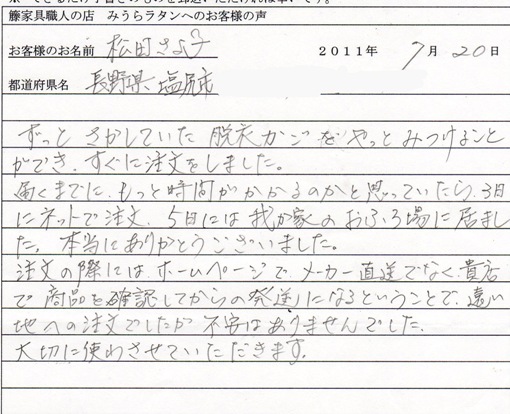 藤家具職人の店 みうらラタンへのお客様の声
お客様のお名前 松田さよ子 2011年 7月20日
都道府県名 長野県塩尻市
ずっと さがしていた 脱衣かごをやっとみつけること
ができ、すぐに注文をしました。
届くまでに、もっと時間がかかるのかと思っていたら、3日
にネットで注文 5日には我が家のおふろ場に居まし
た。本当にありがとうございました。
注文の際には、ホームページで、メーカー直送でなく貴店
で商品を確認してからの発送になるということで、遠い
地への注文でしたが不安はありませんでした。
大切に使わさせていただきます。